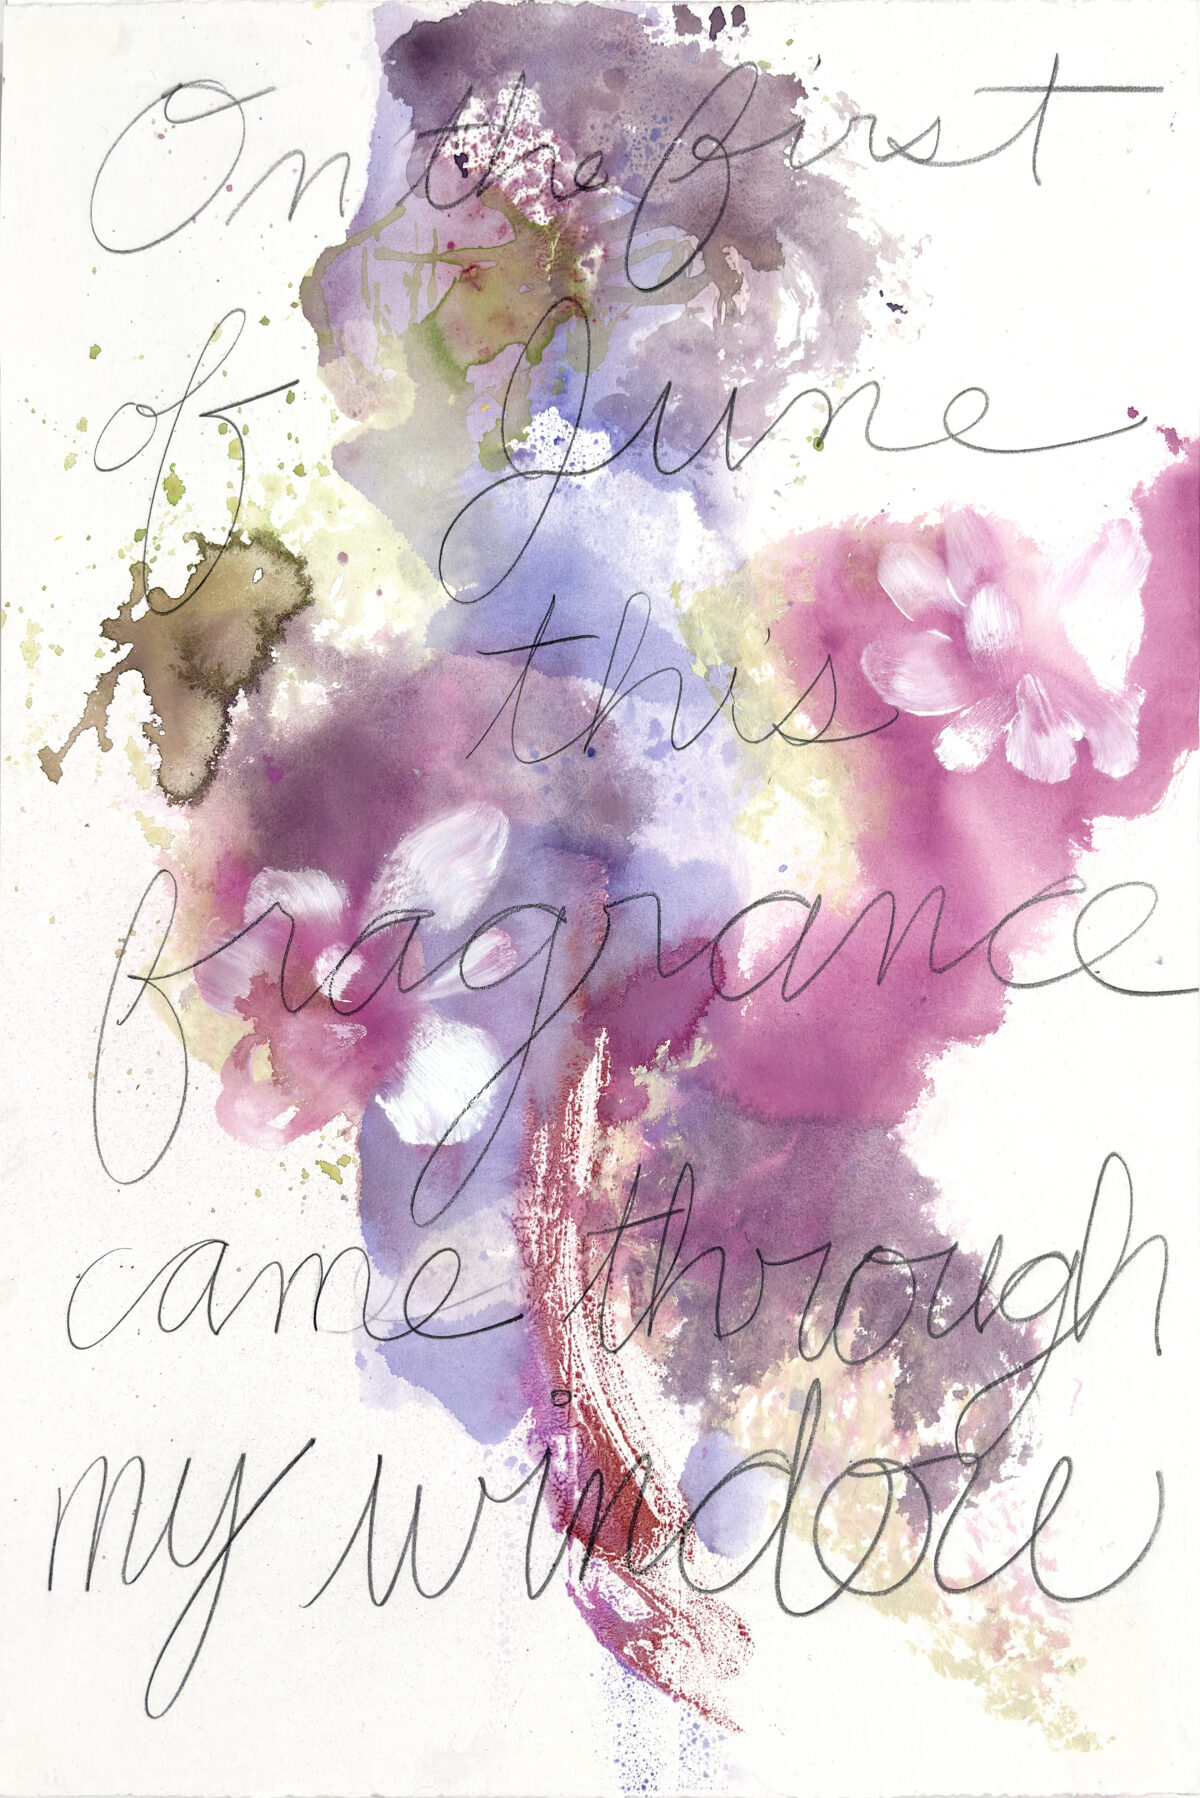 On the first
of June
this
fragrance
came through
my window